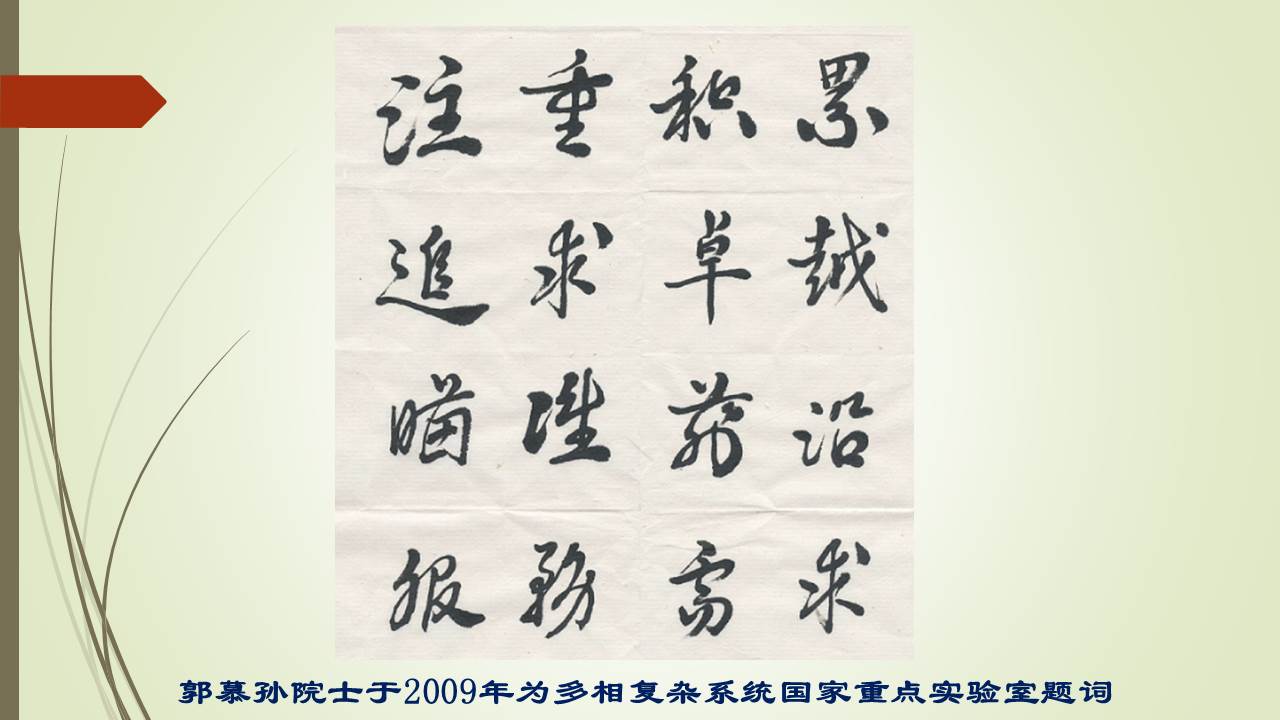 注重积累
追求卓越
瞄准前沿
服務需求
郭慕孙院士于2009年为多相复杂系统国家重点实验室题词